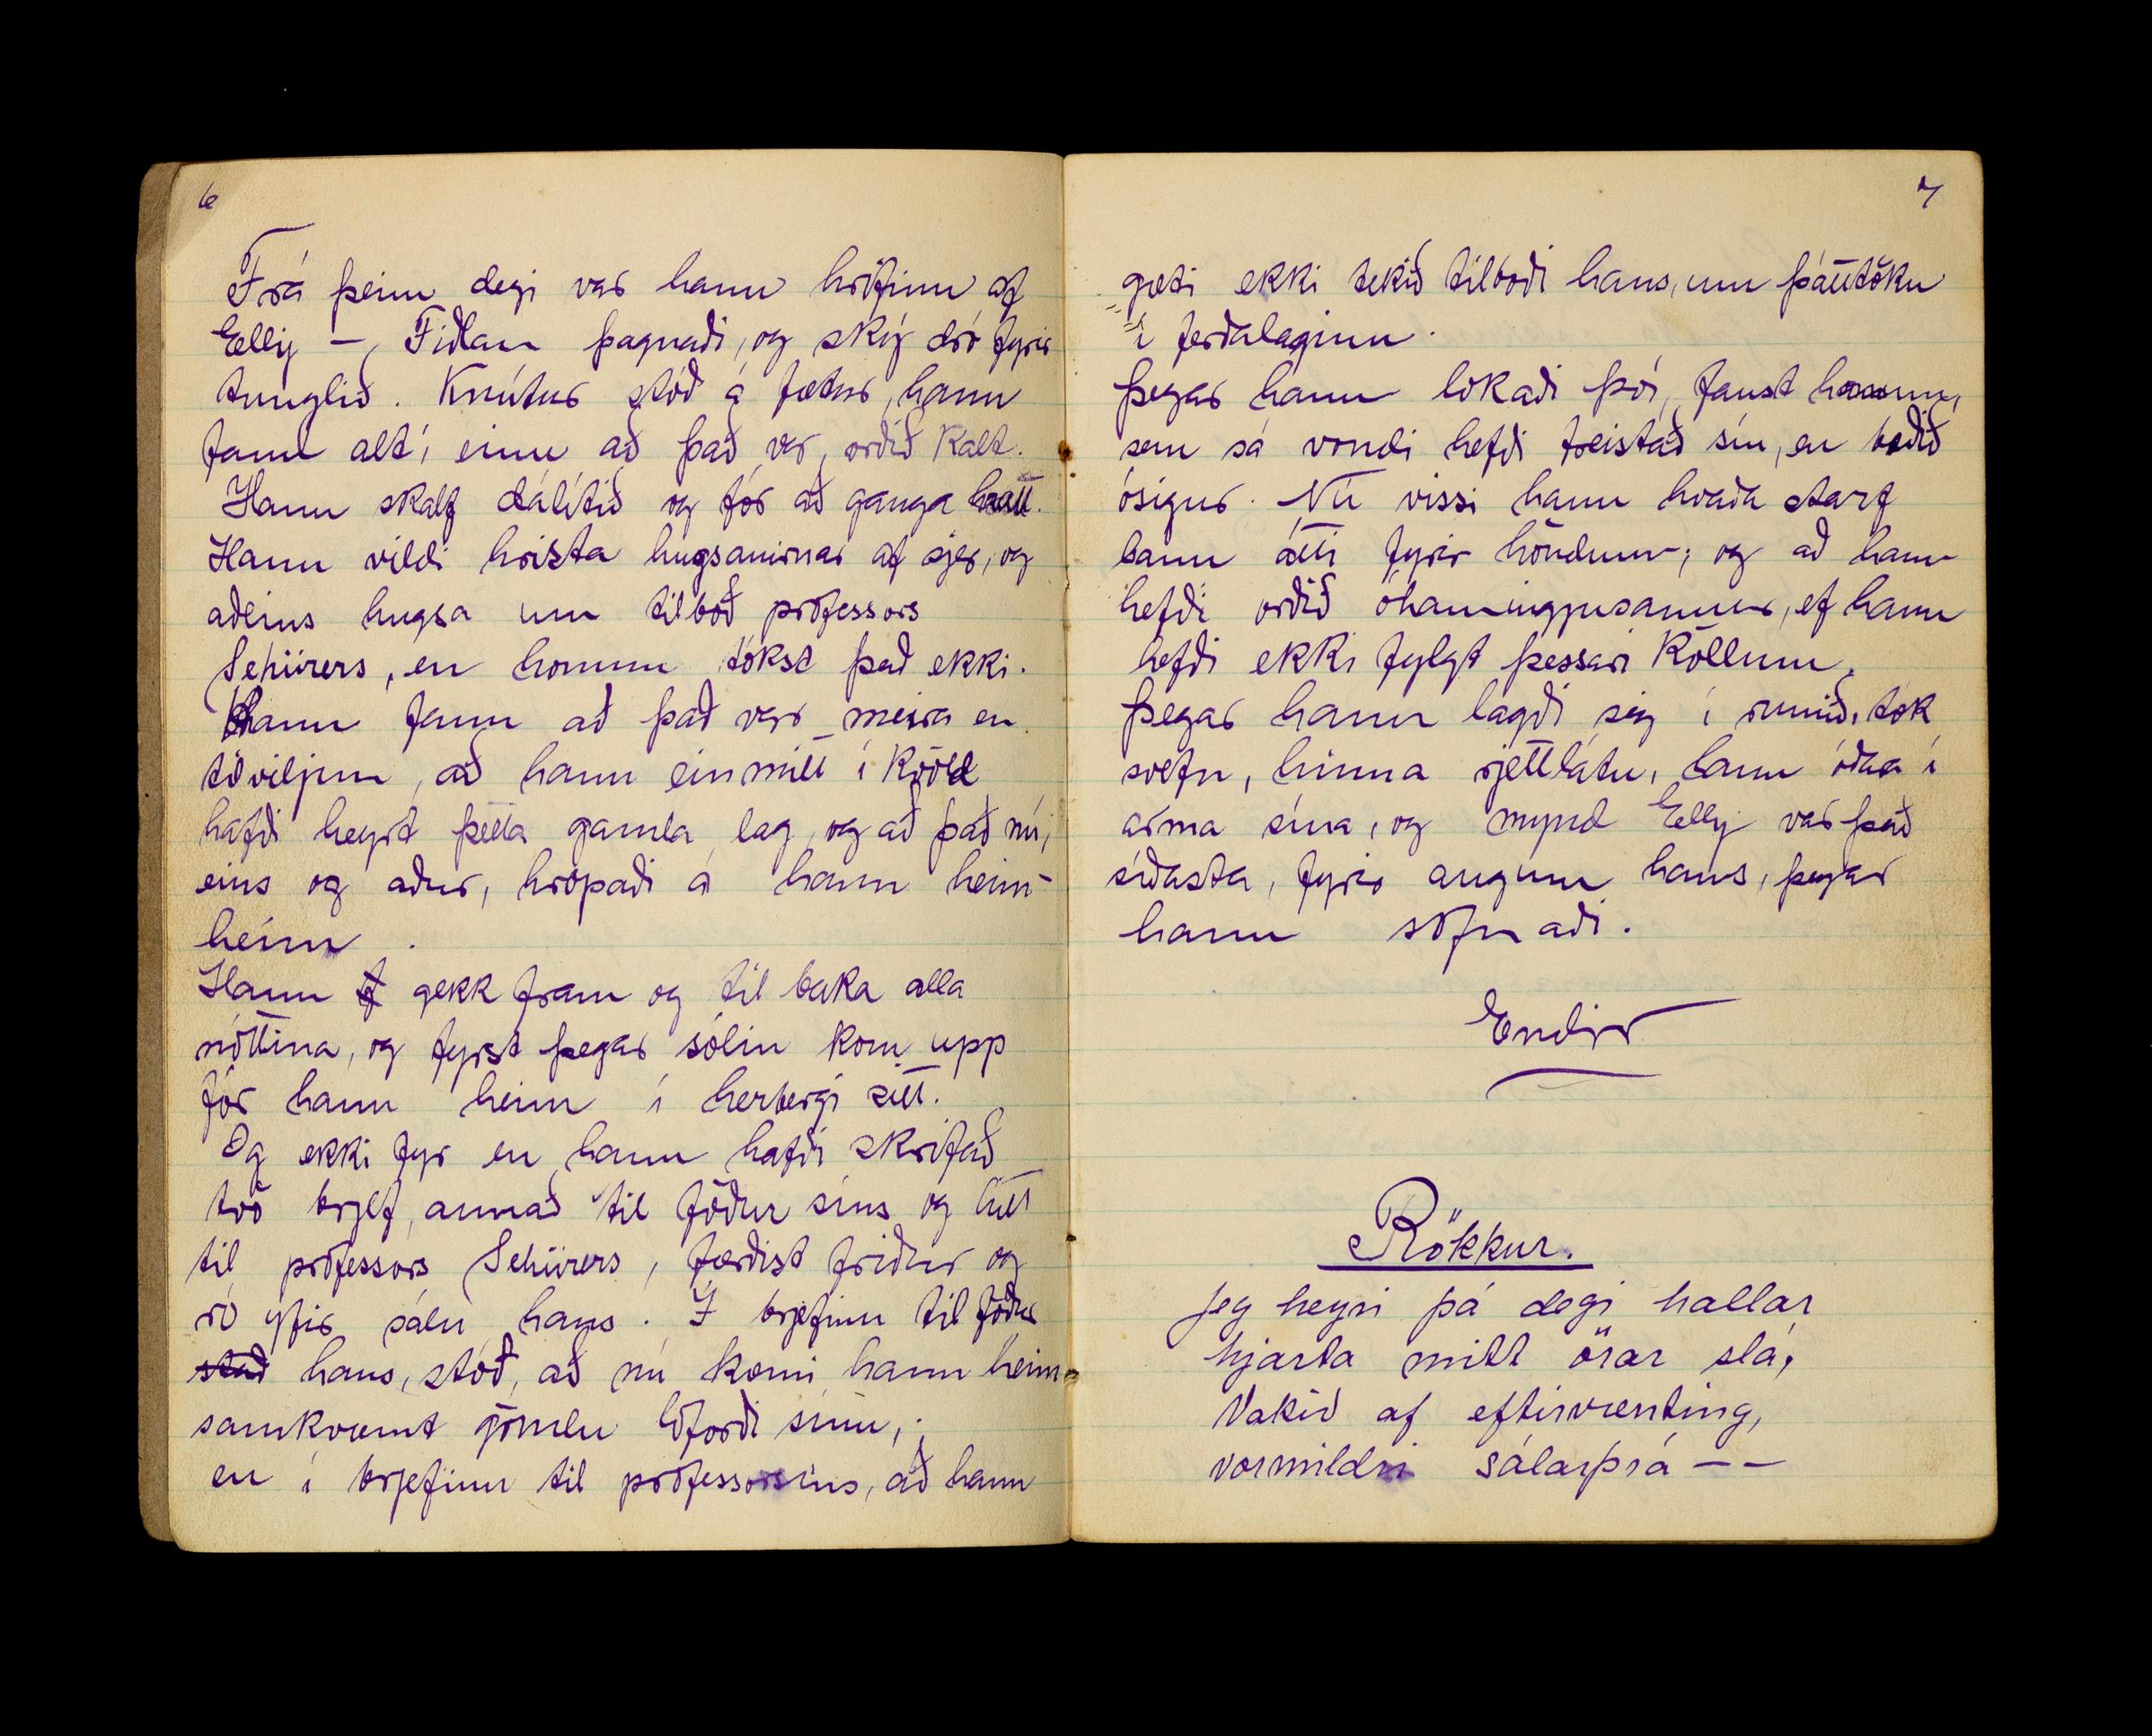 6
Frá þeim degi var hann hrifinn af
Elly –, Fiðlan þagnaði, og ský dró fyrir
tunglið. Knútur stóð á fætur, hann
fann alt í einu að það var orðið kalt.
Hann skalf dálítið og fór að ganga hratt.
Hann vildi hrista hugsanirnar af sjer, og
aðeins hugsa um tilboð prófessors
Schürers, en honum tókst það ekki.
Hann fann að það var meira en
tilviljun, að hann einmitt í kvöld
hafði heyrt þetta gamla lag, og að það nú,
eins og aður, hrópaði á hann heim-
heim.
Hann gekk fram og til baka alla
nóttina, og fyrst þegar sólin kom upp
fór hann heim í herbergi sitt.
Og ekki fyr en hann hafði skrifað
tvö brjef, annað til föður síns og hitt
til prófessors Schürers, færðist friður og
ró yfir sálu hans. Í brjefinu til föður
stað hans, stóð, að nú kæmi hann heim-
samkvæmt gömlu loforði sínu,
en í brjefinu til prófessorsins, að hann
7
gæti ekki tekið tilboði hans, um þátttöku
í ferðalaginu.
Þegar hann lokaði því, fanst honum,
sem sá vondi hefði freistað sín, en beðið
ósigur. Nú vissi hann hvaða starf
hann átti fyrir höndum, og að hann
hefði orðið óhamingjusamur, ef hann
hefði ekki fylgt þessari köllun.
Þegar hann lagði sig í rúmið, tók
svefn, hinna rjettlátu, hann óðar í
arma sína, og mynd Elly var það
síðasta, fyrir augum hans, þegar
hann sofnaði.
Endir
Rökkur.
Jeg heyri þá degi hallar
hjarta mitt örar slá,
Vakið af eftirvænting,
vormildri sálarþrá – –